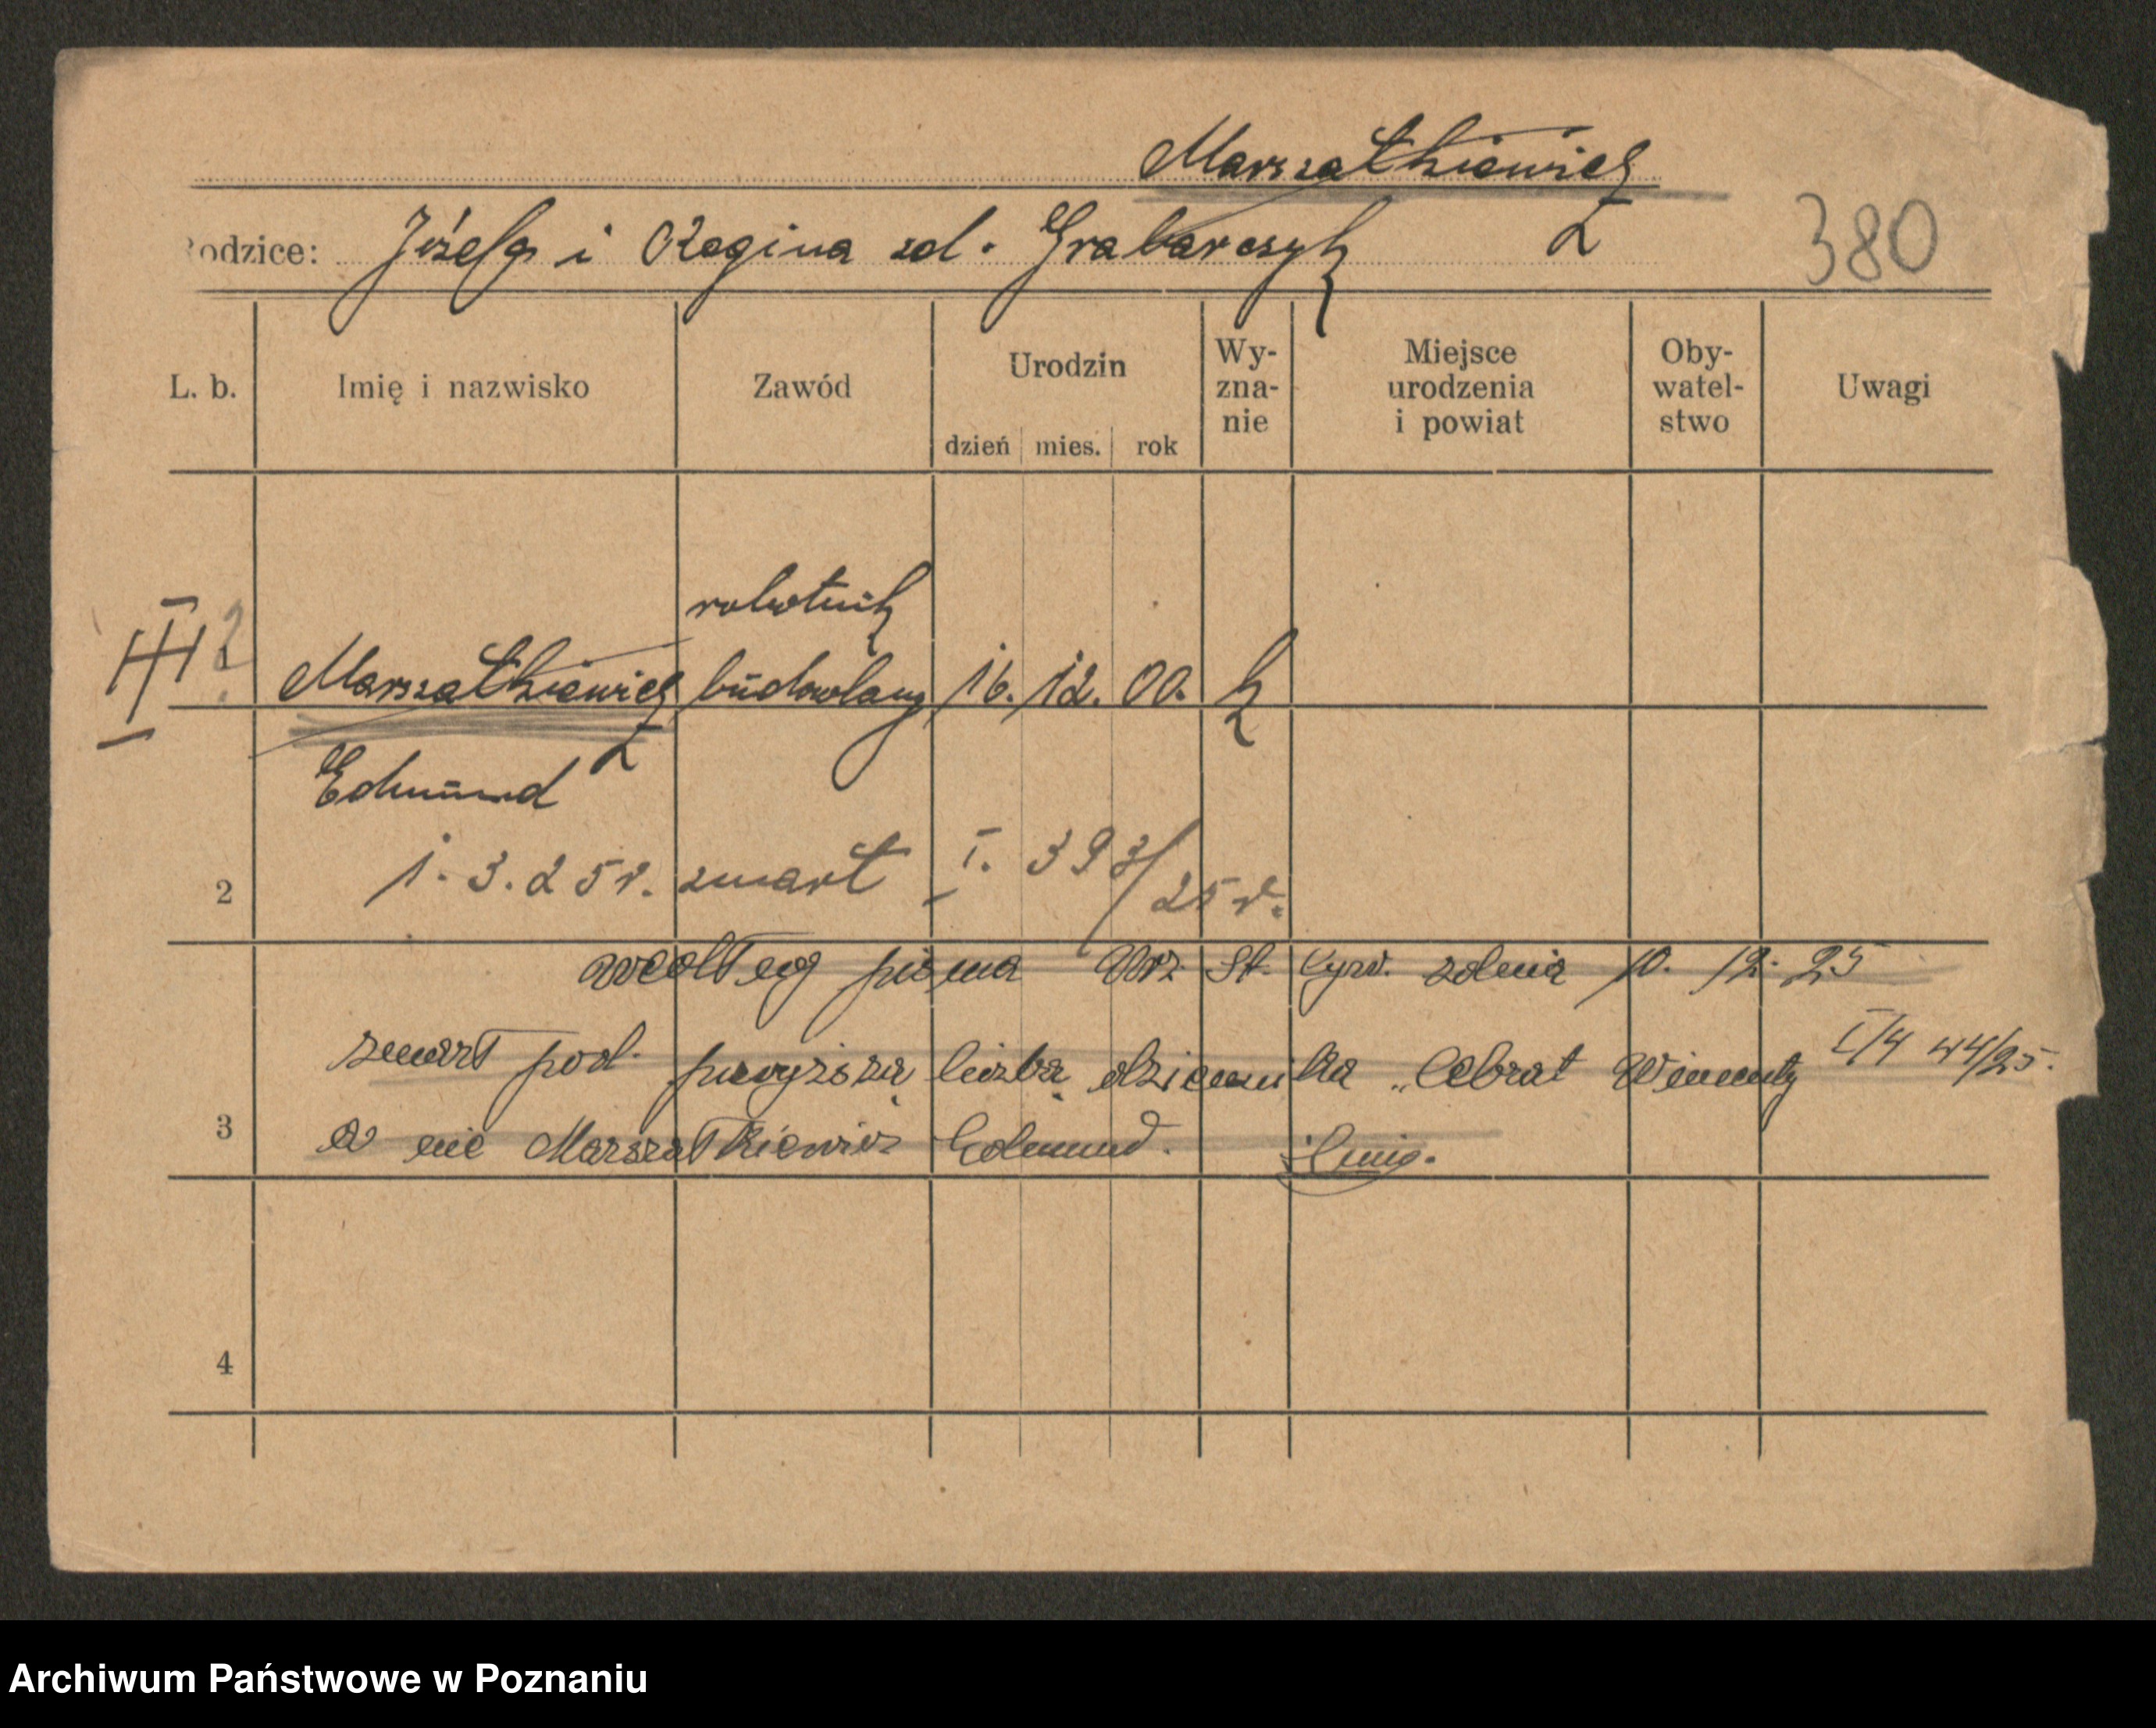 Marszałkiewicz
380
odzice: Józefa i Regina zd. Grabarczyk
L. b. Imię i nazwisko Zawód Urodzin Wy-zna-nie Miejsce urodzenia i powiat Oby-watel-stwo Uwagi
dzień mies. rok
robotnik
III Marszałkiewicz budowlany 16. 12. 00. k
Edmund
2 1. 3. 25 r. zmart I. 393/25 r.
według pisma Urz. St. Cyw. z dnia 10. 12. 25 I/4 44/25.
zmarł pod powyższą liczbą dziennika „Cebrat Wincenty
3 a nie Marszałkiewicz Edmund.
4
Archiwum Państwowe w Poznaniu